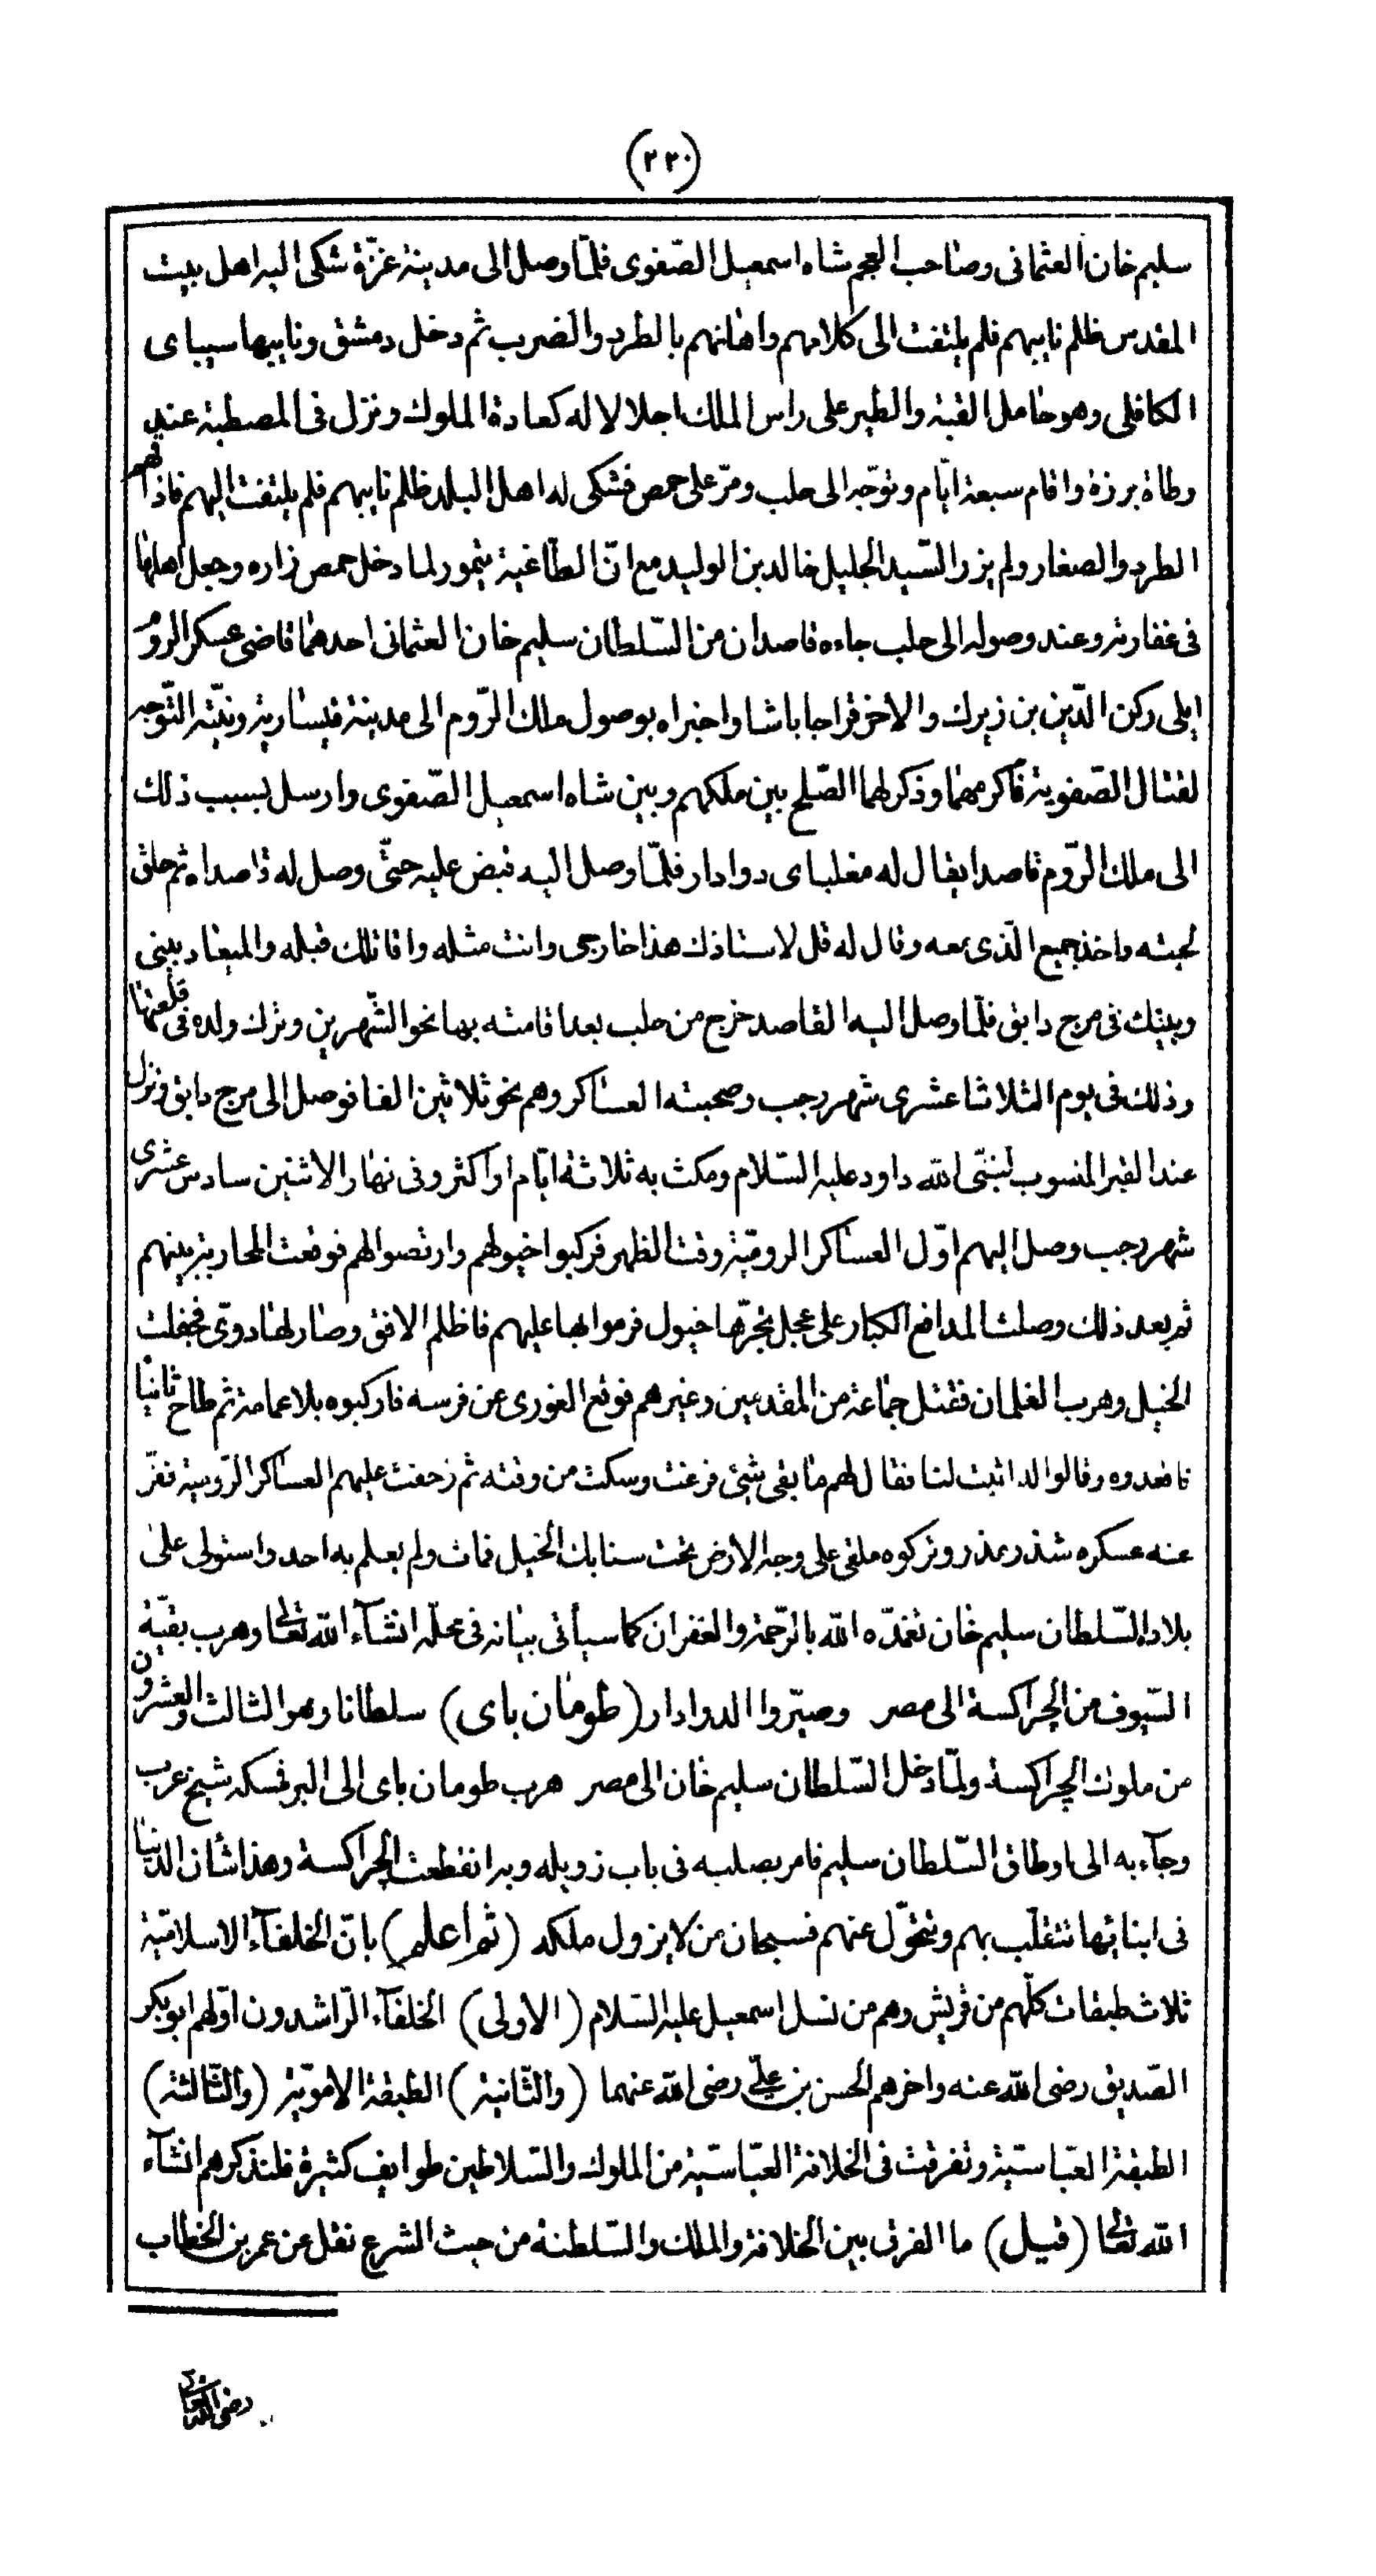 (٢٢٠)
سليم خان العثمانى وصاحب العجم شاه اسمعيل الصفوى فلمّا وصل الى مدينة غزّة شكى اليه اهل بيت
المقدس ظلم نايبهم فلم يلتفت الى كلامهم واهانهم بالطرد والضرب ثم دخل دمشق ونايبها سيباى
الكافلى وهو حامل القبة والطير على راس الملك اجلالا له كعادة الملوك ونزل فى المصطبة عند
وطاة برزة واقام سبعة ايّام وتوجّه الى حلب ومرّ على حمص فشكى له اهل البلد ظلم نايبهم فلم يلتفت اليهم فاذاقهم
الطرد والصغار ولم يزر السّيد الجليل خالد بن الوليد مع انّ الطّاغية تيمور لما دخل حمص زاره وجعل اهلها
فى غفارته وعند وصوله الى حلب جاءه قاصدان من السّلطان سليم خان العثمانى احدهما قاضى عسكر الروم
ايلى ركن الدّين بن زيرك والاخر قراجا باشا واخبراه بوصول ملك الرّوم الى مدينة قيسارية ونيّته التّوجه
لقتال الصّفوية فاكرمهما وذكر لهما الصّلح بين ملكهم وبين شاه اسمعيل الصّفوى وارسل بسبب ذلك
الى ملك الرّوم قاصدا يقال له مغلباى دوادار فلمّا وصل اليه قبض عليه حتّى وصل له قاصداه ثم حلق
لحيته واخذ جميع الّذى معه وقال له قل لاستاذك هذا خارجى وانت مثله واقاتلك قبله والميعاد بينى
وبينك فى مرج دابق فلمّا وصل اليه القاصد خرج من حلب بعد اقامته بها نحو الشّهرين وترك ولده فى قلعتها
وذلك فى يوم الثلاثا عشرى شهر رجب وصحبته العساكر وهم نحو ثلاثين الفا فوصل الى مرج دابق ونزل
عند القبر المنسوب لنبىّ الله داود عليه السّلام ومكث به ثلاثة ايّام او اكثر وفى نهار الاثنين سادس عشرى
شهر رجب وصل اليهم اوّل العساكر الروميّة وقت الظهر فركبوا خيولهم وارتصوا لهم فوقعت المحاربة بينهم
ثم بعد ذلك وصلت المدافع الكبار على عجل تجرّها خيول فرموا بها عليهم فاظلم الافق وصار لها دوىّ فجفلت
الخيل وهرب الغلمان فقتل جماعة من المقدمين وغيرهم فوقع الغورى عن فرسه فاركبوه بلا عمامة ثم طاح ثانيا
فاقعدوه وقالوا له اثبت لنا فقال لهم ما بقى شئ فرغت وسكت من وقته ثم زحفت عليهم العساكر الرّومية ففرّ
عنه عسكره شذر مذر وتركوه ملقى على وجه الارض تحت سنابك الخيل فمات ولم يعلم به احد واستولى على
بلاده السّلطان سليم خان تغمّده الله بالرّحمة والغفران كما سيأتى بيانه فى محلّه انشآء الله تعالى وهرب بقيّة
السّيوف من الچراكسة الى مصر وصيّروا الدوادار (طومان باى) سلطانا وهو الثالث والعشرون
من ملوك الچراكسة ولمّا دخل السّلطان سليم خان الى مصر هرب طومان باى الى البر فمسكه شيخ عرب
وجآء به الى اوطاق السّلطان سليم فامر بصلبه فى باب زويله وبه انقطعت الچراكسة وهذا شأن الدنيا
فى ابنائها تتقلّب بهم وتتحوّل عنهم فسبحان من لا يزول ملكه (ثم اعلم) بانّ الخلفآء الاسلاميّة
ثلاث طبقات كلّهم من قريش وهم من نسل اسمعيل عليه السّلام (الاولى) الخلفآء الرّاشدون اوّلهم ابو بكر
الصّديق رضى الله عنه واخرهم الحسن بن علىّ رضى الله عنهما (والثّانية) الطبقة الامويّة (والثّالثة)
الطبقة العبّاسيّة وتفرقت فى الخلافة العبّاسيّة من الملوك والسّلاطين طوايف كثيرة فلنذكرهم انشآء
الله تعالى (قيل) ما الفرق بين الخلافة والملك والسّلطنة من حيث الشرع نقل عن عمر بن الخطاب
رضى الله تعالى